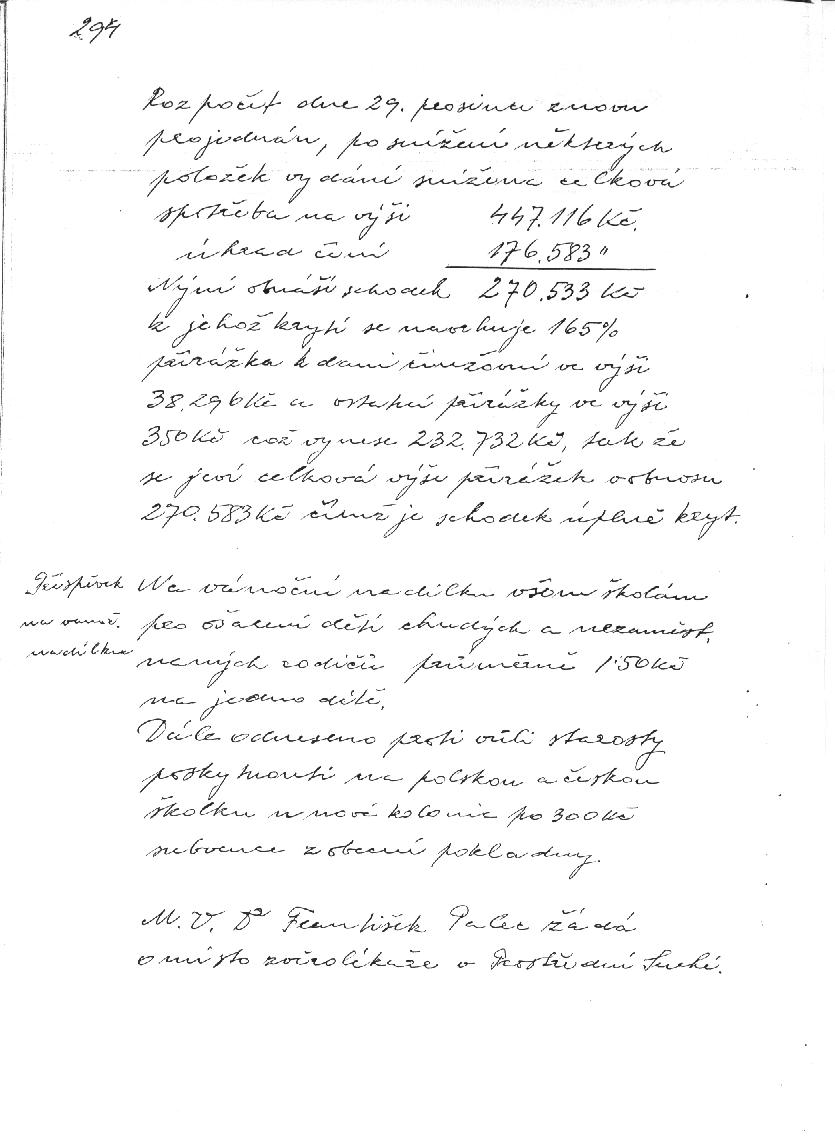 294
Rozpočet dne 29. prosince znovu
projednán, po snížení některých
položek vydání snížena celková
spotřeba na výši 447.116 Kč.
úhrad činí 176.583 "
Nyní obnáší schodek 270.533 Kč
k jehož krytí se navrhuje 165%
přirážka k dani činžovní ve výši
38.296 Kč a ostatní přirážky ve výši
350 Kč což vynese 232.732 Kč, tak že
se jeví celková výše přirážek v obnosu
270.583 Kč čímž je schodek úplně kryt.
Příspěvek
na vánoč.
nadílku
Na vánoční nadílku všem školám
pro ošacení dětí chudých a nezaměst,
naných rodičů průměrně 1'50 Kč
na jedno dítě,
Dále odneseno proti vůli starosty
poskytnouti na polskou a českou
školku v nové kolonie po 300 Kč
subvence z obecní pokladny.
M. V. Dr František Palec žádá
o místo zvěrolékaře v Prostřední Suché.